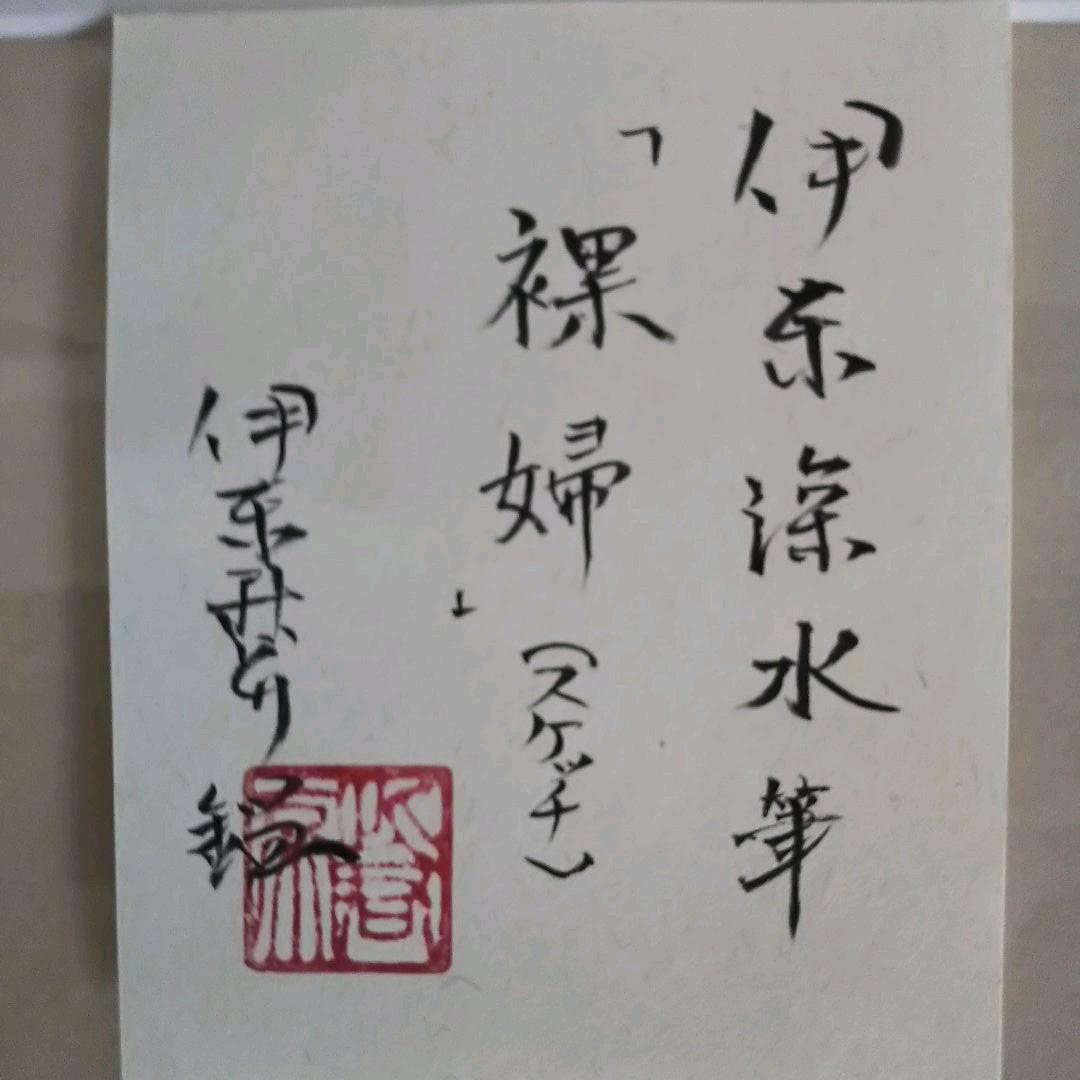 伊東深水筆
「裸婦」(スケッチ)
伊東 鑑